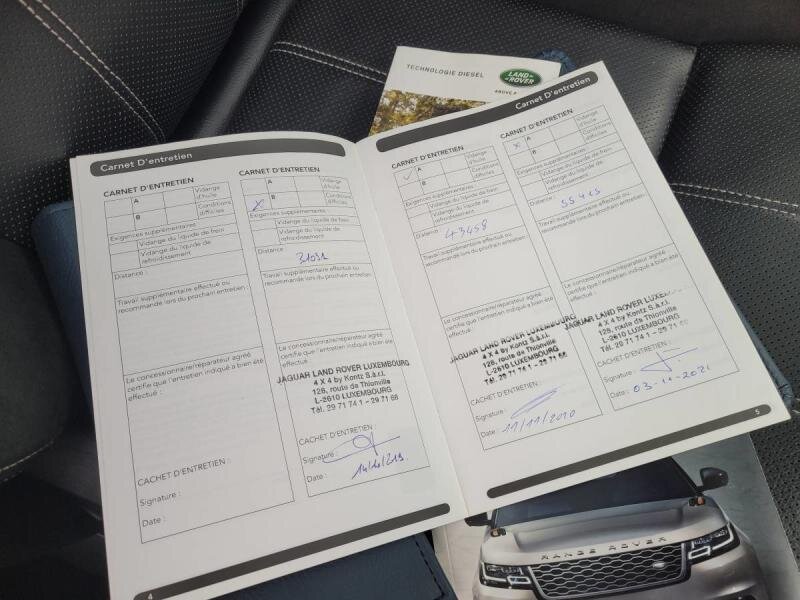 TECHNOLOGIE DIESEL
LAND ROVER
Carnet D'entretien
CARNET D'ENTRETIEN
A
Vidange d'huile
B
Conditions difficiles
Exigences supplémentaires :
Vidange du liquide de frein
Vidange du liquide de refroidissement
Distance :
Travail supplémentaire effectué ou
recommandé lors du prochain entretien :
Le concessionnaire/réparateur agréé
certifie que l'entretien indiqué a bien été
effectué :
CACHET D'ENTRETIEN :
Signature :
Date :
4
CARNET D'ENTRETIEN
A
Vidange d'huile
X
B
Conditions difficiles
Exigences supplémentaires :
Vidange du liquide de frein
Vidange du liquide de refroidissement
Distance :
31091
Travail supplémentaire effectué ou
recommandé lors du prochain entretien :
Le concessionnaire/réparateur agréé
certifie que l'entretien indiqué a bien été
effectué :
JAGUAR LAND ROVER LUXEMBOURG
4 X 4 by Kontz S.à.r.l.
128, route de Thionville
L-2610 LUXEMBOURG
Tél. 29 71 74 1 - 29 71 68
CACHET D'ENTRETIEN :
Signature :
Date :
Carnet D'entretien
CARNET D'ENTRETIEN
A
Vidange d'huile
B
Conditions difficiles
Exigences supplémentaires :
Vidange du liquide de frein
Vidange du liquide de refroidissement
Distance :
43458
Travail supplémentaire effectué ou
recommandé lors du prochain entretien :
Le concessionnaire/réparateur agréé
certifie que l'entretien indiqué a bien été
effectué :
JAGUAR LAND ROVER LUXEMBOURG
4 X 4 by Kontz S.à.r.l.
128, route de Thionville
L-2610 LUXEMBOURG
Tél. 29 71 74 1 - 29 71 68
CACHET D'ENTRETIEN :
Signature :
Date : 11/11/2020
CARNET D'ENTRETIEN
x
A
Vidange d'huile
B
Conditions difficiles
Exigences supplémentaires :
Vidange du liquide de frein
Vidange du liquide de refroidissement
Distance :
55415
Travail supplémentaire effectué ou
recommandé lors du prochain entretien :
Le concessionnaire/réparateur agréé
certifie que l'entretien indiqué a bien été
effectué :
JAGUAR LAND ROVER
4 X 4 by Kontz S.à.r.l.
128, route de Thionville
L-2610 LUXEMBOURG
Tél. 29 71 74 1 - 29 71 68
CACHET D'ENTRETIEN :
Signature :
Date :
5
RANGE ROVER